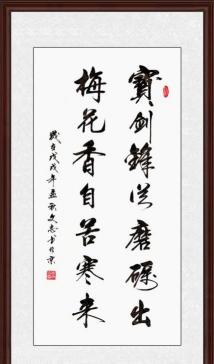 寶劍鋒從磨礪出
梅花香自苦寒来
歲在戊戌年孟秋文志書於京